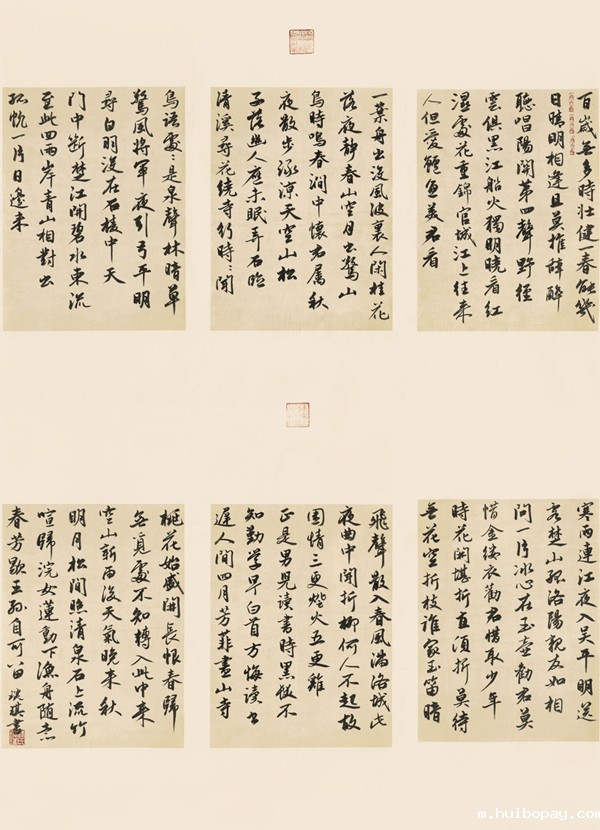 百歲無多時壯健一春能幾
日晴明相逢且莫推辭醉
聽唱陽關第四聲野徑
雲俱黑江船火獨明曉看紅
濕處花重錦官城江上往来
人但愛鱸魚美君看
一葉舟出沒風波裏人閑桂花
落夜静春山空月出驚山
鳥時鳴春澗中懷君屬秋
夜散步詠涼天空山松
子落幽人應未眠弄石臨
清溪尋花繞寺行時〻聞
鳥語處〻是泉聲林暗草
驚風將軍夜引弓平明
尋白羽沒在石棱中天
門中斷楚江開碧水東流
至此回兩岸青山相對出
孤帆一片日邊来
寒雨連江夜入吳平明送
客楚山孤洛陽親友如相
問一片冰心在玉壺勸君莫
惜金縷衣勸君惜取少年
時花開堪折直須折莫待
無花空折枝誰家玉笛暗
飛聲散入春風滿洛城此
夜曲中聞折柳何人不起故
園情三更燈火五更雞
正是男兒讀書時黑髮不
知勤學早白首方悔讀書
遲人間四月芳菲盡山寺
桃花始盛開長恨春歸
無覓處不知轉入此中来
空山新雨後天氣晚来秋
明月松間照清泉石上流竹
喧歸浣女蓮動下漁舟随意
春芳歇王孫自可留 琪書
m.huibopay.com